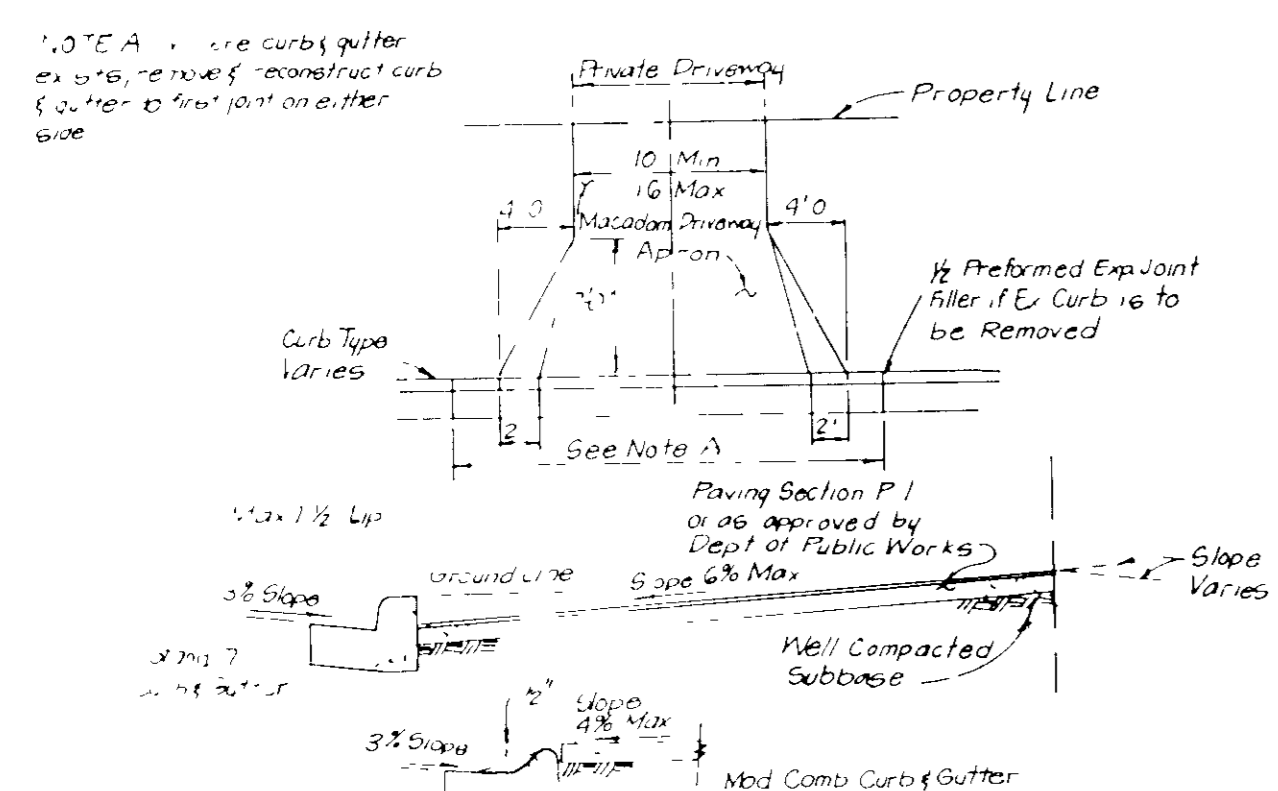 curb & gutter
reconstruct curb
& gutter to first joint on either
side
Private Driveway
Property Line
10 Min
16 Max
4'0
4'0
Macadam Driveway
Apron
½ Preformed Exp Joint
Filler if Ex Curb is to
be Removed
Curb Type
Varies
2
2'
See Note A
Max 1½ Lip
Paving Section P 1
or as approved by
Dept of Public Works
Ground Line
Slope 6% Max
Slope
Varies
3% Slope
Well Compacted
Subbase
Slope
4% Max
3% Slope
Mod Comb Curb & Gutter